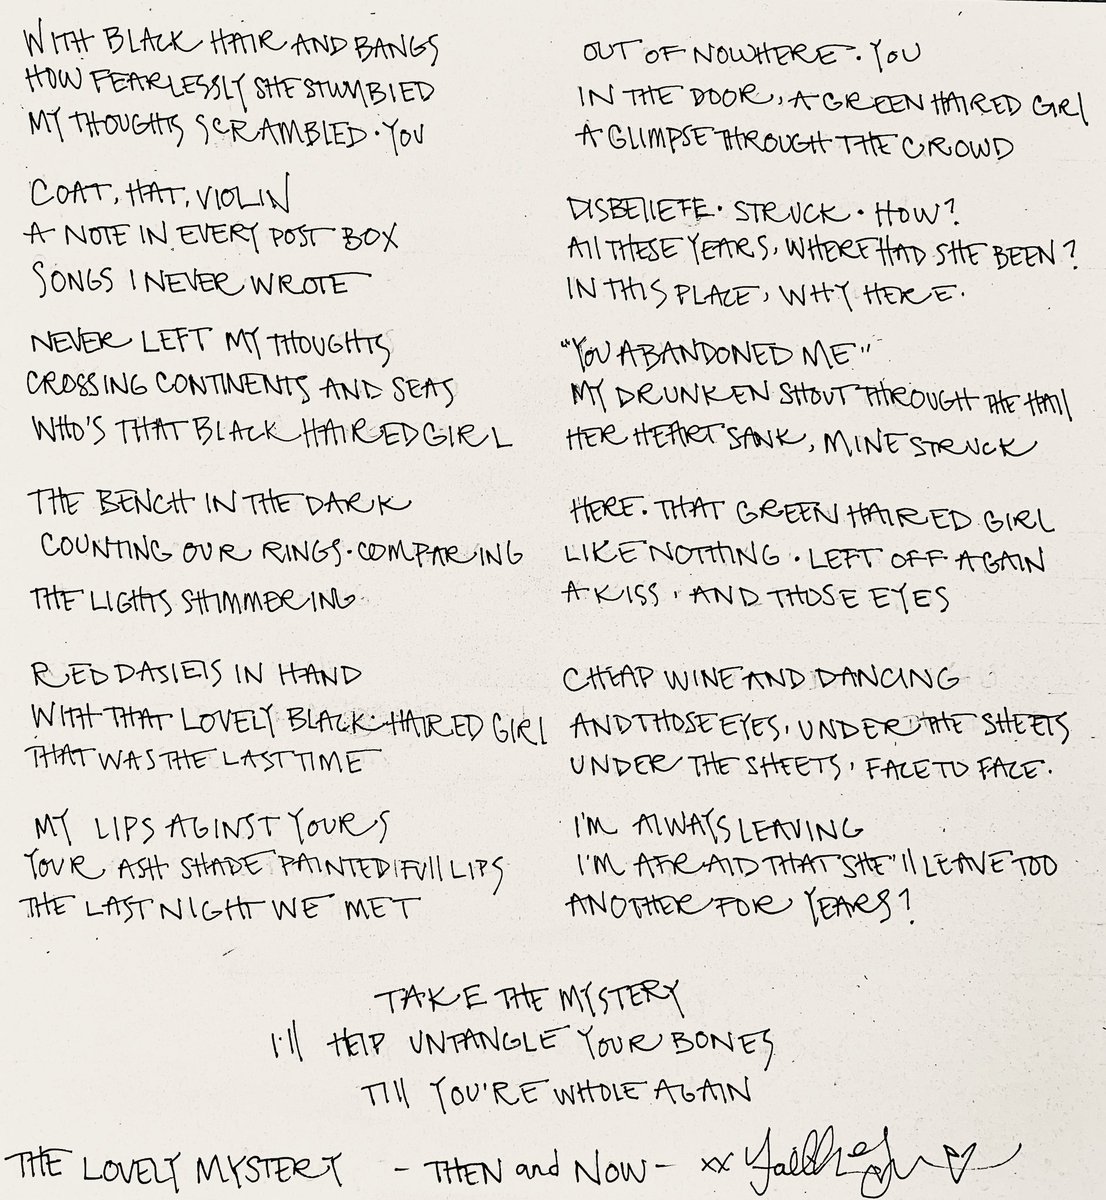 WITH BLACK HAIR AND BANGS
HOW FEARLESSLY SHE STUMBLED
MY THOUGHTS SCRAMBLED · YOU
COAT, HAT, VIOLIN
A NOTE IN EVERY POST BOX
SONGS I NEVER WROTE
NEVER LEFT MY THOUGHTS
CROSSING CONTINENTS AND SEAS
WHO'S THAT BLACK HAIRED GIRL
THE BENCH IN THE DARK
COUNTING OUR RINGS · COMPARING
THE LIGHTS SHIMMERING
RED DASIEIS IN HAND
WITH THAT LOVELY BLACK · HAIRED GIRL
THAT WAS THE LAST TIME
MY LIPS AGINST YOURS
YOUR ASH SHADE PAINTED, FULL LIPS
THE LAST NIGHT WE MET
OUT OF NOWHERE · YOU
IN THE DOOR, A GREEN HAIRED GIRL
A GLIMPSE THROUGH THE CROWD
DISBELIEFE · STRUCK · HOW?
ALL THESE YEARS, WHERE HAD SHE BEEN?
IN THIS PLACE, WHY HERE.
"YOU ABANDONED ME"
MY DRUNKEN SHOUT THROUGH THE HALL
HER HEART SANK, MINE STRUCK
HERE. THAT GREEN HAIRED GIRL
LIKE NOTHING · LEFT OFF AGAIN
A KISS, AND THOSE EYES
CHEAP WINE AND DANCING
AND THOSE EYES, UNDER THE SHEETS
UNDER THE SHEETS, FACE TO FACE.
I'M ALWAYS LEAVING
I'M AFRAID THAT SHE'LL LEAVE TOO
ANOTHER FOR YEARS?
TAKE THE MYSTERY
I'LL HELP UNTANGLE YOUR BONES
TILL YOU'RE WHOLE AGAIN
THE LOVELY MYSTERY - THEN and NOW - xx